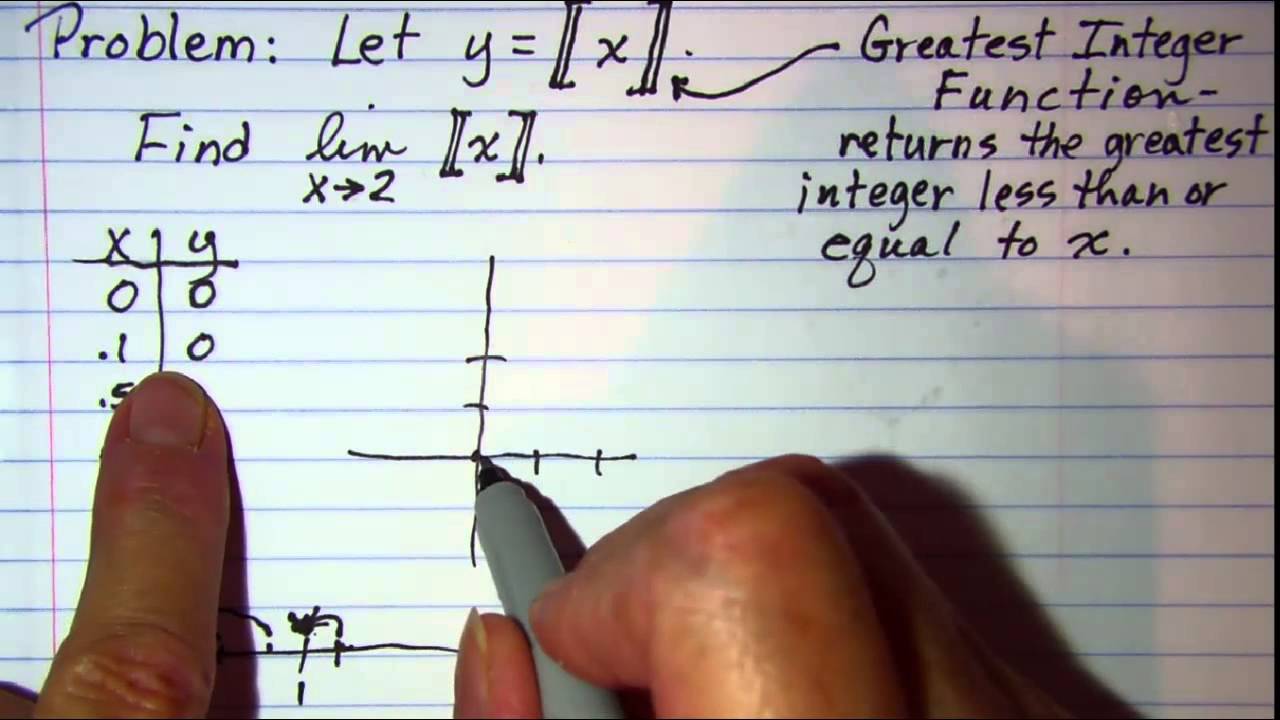 Problem: Let y = ⟦x⟧.
Find lim ⟦x⟧.
x→2
Greatest Integer
Function-
returns the greatest
integer less than or
equal to x.
x y
0 0
.1 0
.5
1